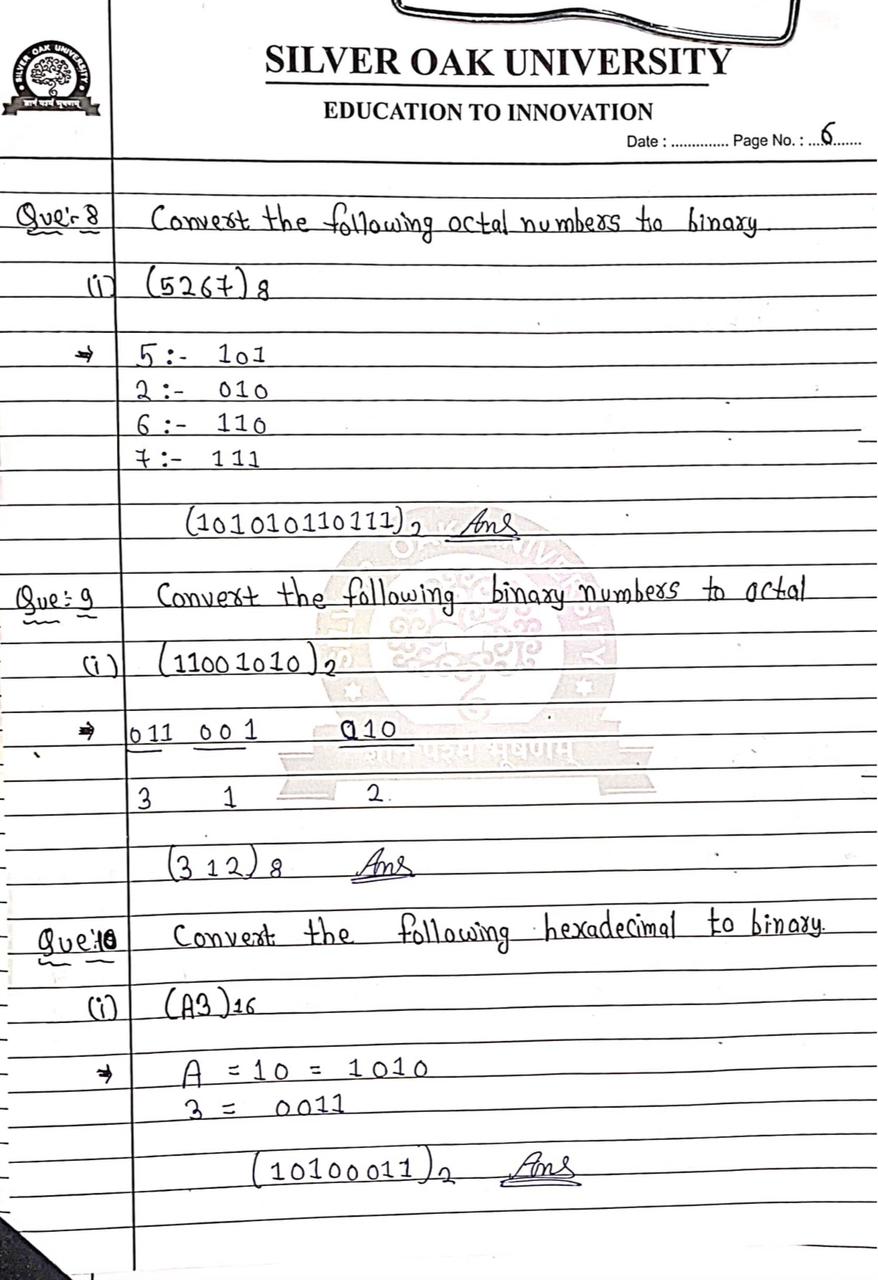 SILVER OAK UNIVERSITY
SILVER OAK UNIVERSITY
EDUCATION TO INNOVATION
Date : .............. Page No. : ...6.......
Que:- 8 Convert the following octal numbers to binary.
(i) (5267)8
⇒ 5 :- 101
2 :- 010
6 :- 110
7 :- 111
(101010110111)2 Ans
Que: 9 Convert the following binary numbers to octal
(i) (11001010)2
⇒ 011 001 010
3 1 2.
(312)8 Ans
Que:10 Convert the following hexadecimal to binary.
(i) (A3)16
⇒ A = 10 = 1010
3 = 0011
(10100011)2 Ans